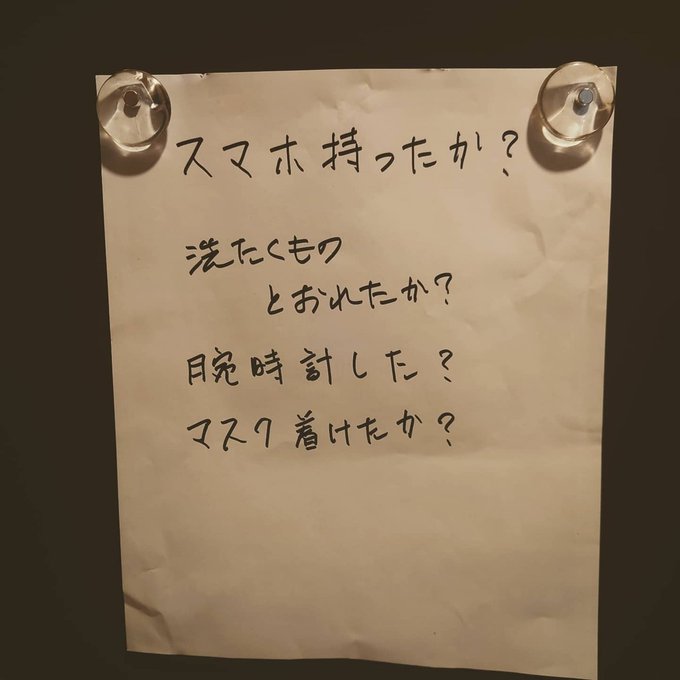 スマホ持ったか?
洗たくもの
とおれたか?
腕時計した?
マスク着けたか?